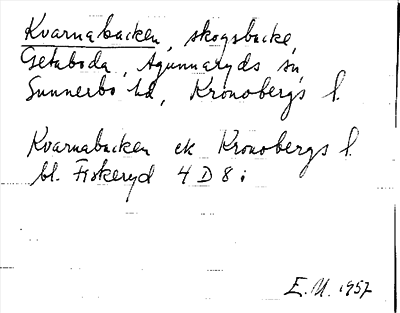 Kvarnabacken, skogsbacke,
Getaboda, Agunnaryds sn,
Sunnerbo hd, Kronobergs l.
Kvarnabacken ek Kronobergs l.
bl. Fiskeryd 4 D 8 i
E. U. 1957